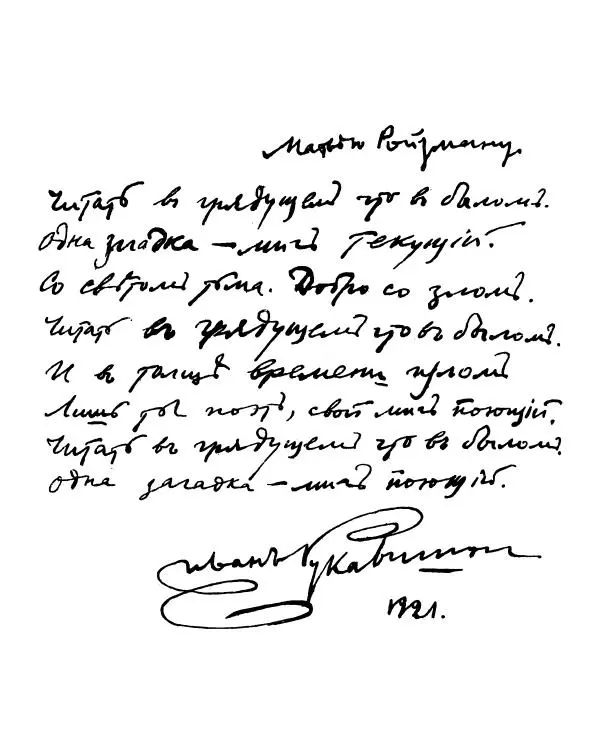 Матвѣю Ройзману.
Читать въ грядущемъ что въ быломъ.
Одна загадка — мигъ текущій.
Со свѣтомъ тьма. Добро со зломъ.
Читать въ грядущемъ что въ быломъ.
И въ толщѣ времени
Лишь ты поэтъ, свой мигъ поющій.
Читать въ грядущемъ что въ быломъ.
Одна загадка — мигъ поющій.
Иванъ Рукавишников
1921.